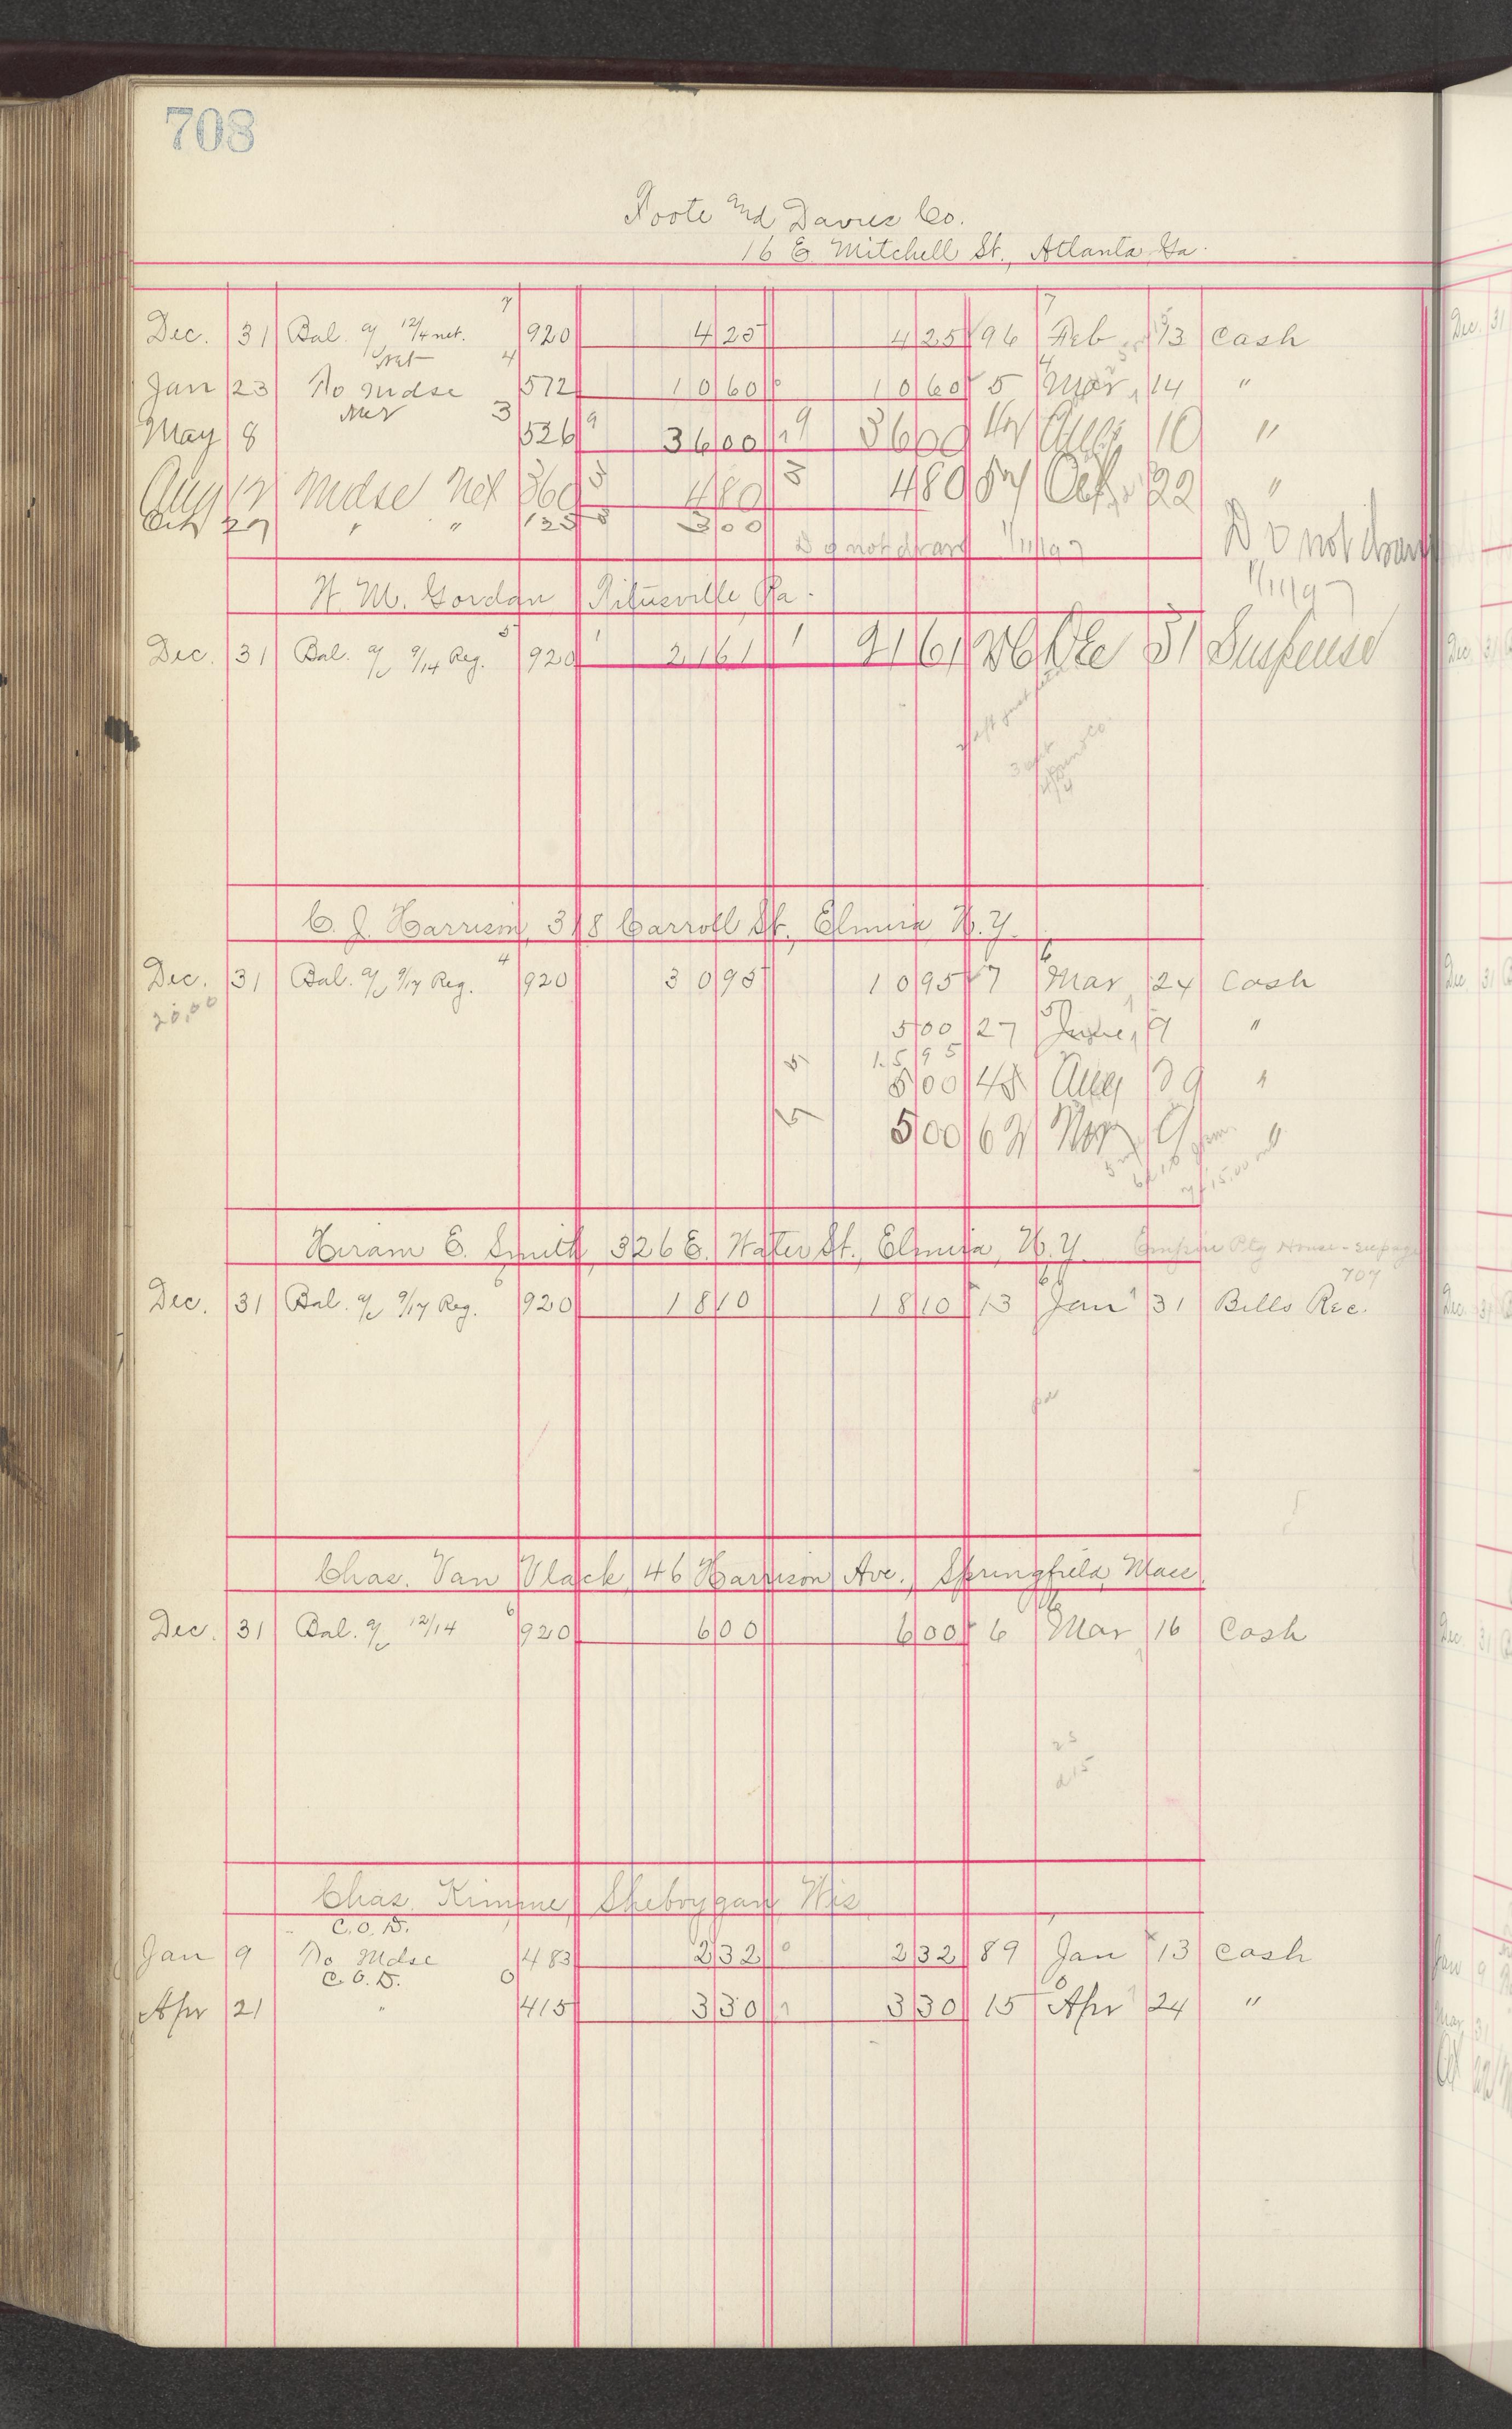 708
Foote and Davies Co.
16 E Mitchell St., Atlanta Ga.
7 7
Dec. 31 Bal. a/c 12/4 net. 920 4 25 4 25 96 Feb 13 Cash
Net 4 4
Jan 23 To Mdse 572 10 60 0 10 60 5 Mar 14 "
Net 3
May 8 526 9 36 00 9 36 00 Aug 10 "
Aug 17 Mdse Net 360 3 4 80 3 4 80 57 Oct 22 "
Oct 27 " " 125 3 00
Do not draw 1/11/97 Do not draw
1/11/97
W. M. Gordon Titusville, Pa.
Dec. 31 Bal. a/c 9/14 Reg. 5 920 1 21 61 1 21 61 76 Dec 31 Suspense
C. J. Harrison, 318 Carroll St., Elmira, N.Y.
Dec. 31 Bal. a/c 9/17 Reg. 4 920 30 95 10 95 7 Mar 24 Cash
20.00
5 00 27 June 9 "
15 95
5 5 00 45 Aug 39 "
5 5 00 62 Nov 9 "
Hiram E. Smith, 326 E. Water St., Elmira, N.Y. Empire Ptg House - see page
707
Dec. 31 Bal. a/c 9/17 Reg. 6 920 18 10 18 10 13 Jan 31 Bills Rec.
Chas. Van Vlack, 46 Harrison Ave., Springfield, Mass.
Dec. 31 Bal. a/c 12/14 6 920 6 00 6 00 6 Mar 16 Cash
23
d 15
Chas. Kimme, Sheboygan Wis
C.O.D.
Jan 9 To Mdse 483 2 32 0 2 32 89 Jan 13 Cash
C.O.D. 0
Apr 21 " 415 3 30 1 3 30 15 Apr 24 "